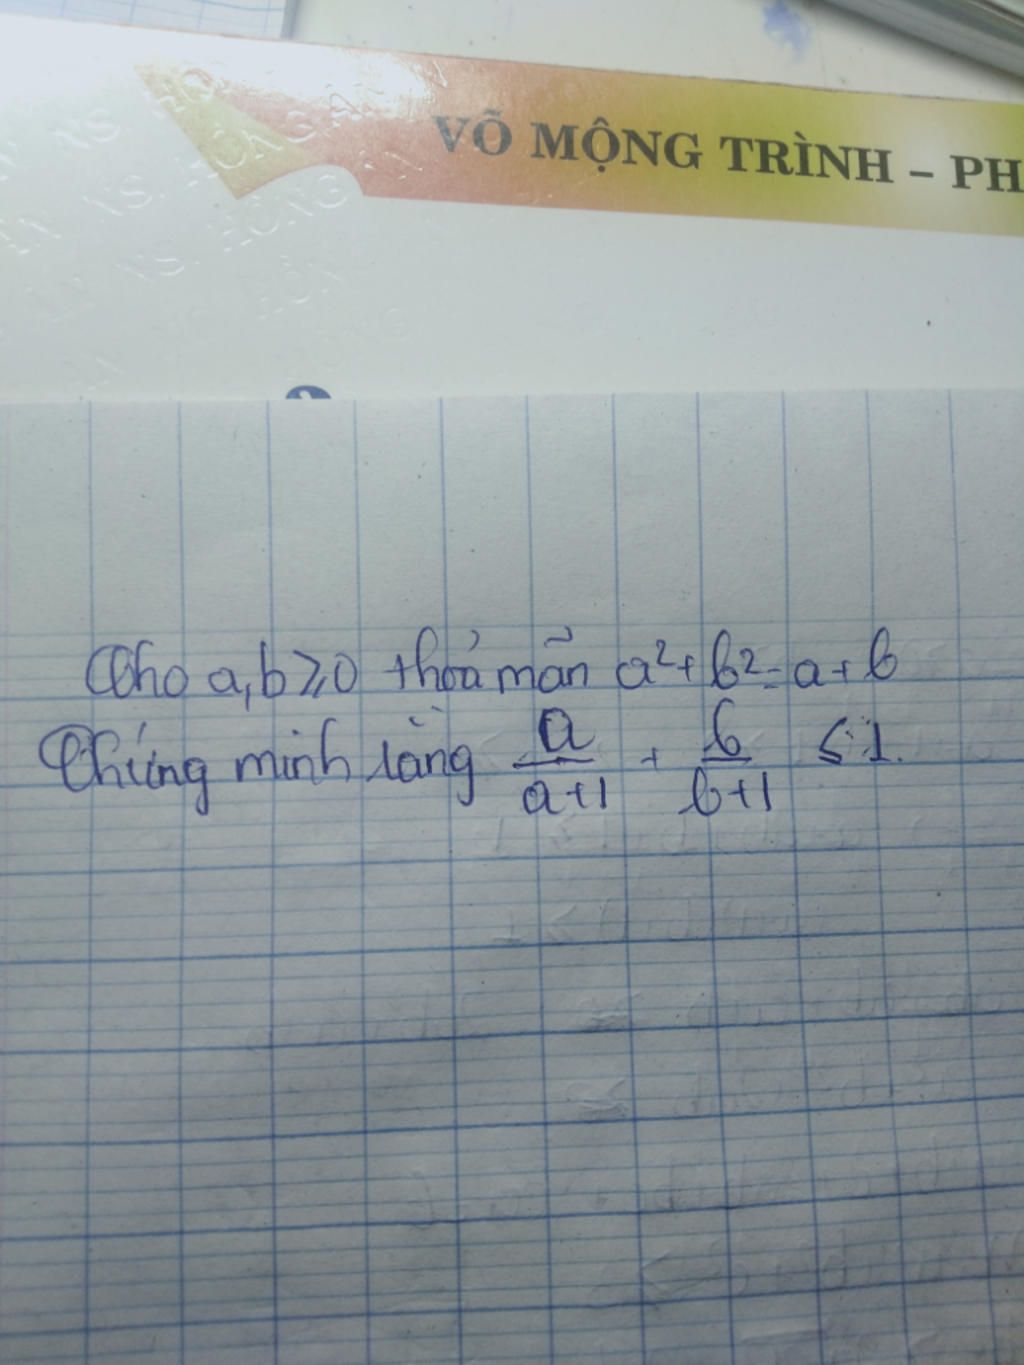 VÕ MỘNG TRÌNH – PH
Cho a, b ≥ 0 thoả mãn a² + b² = a + b
Chứng minh rằng a/(a+1) + b/(b+1) ≤ 1.